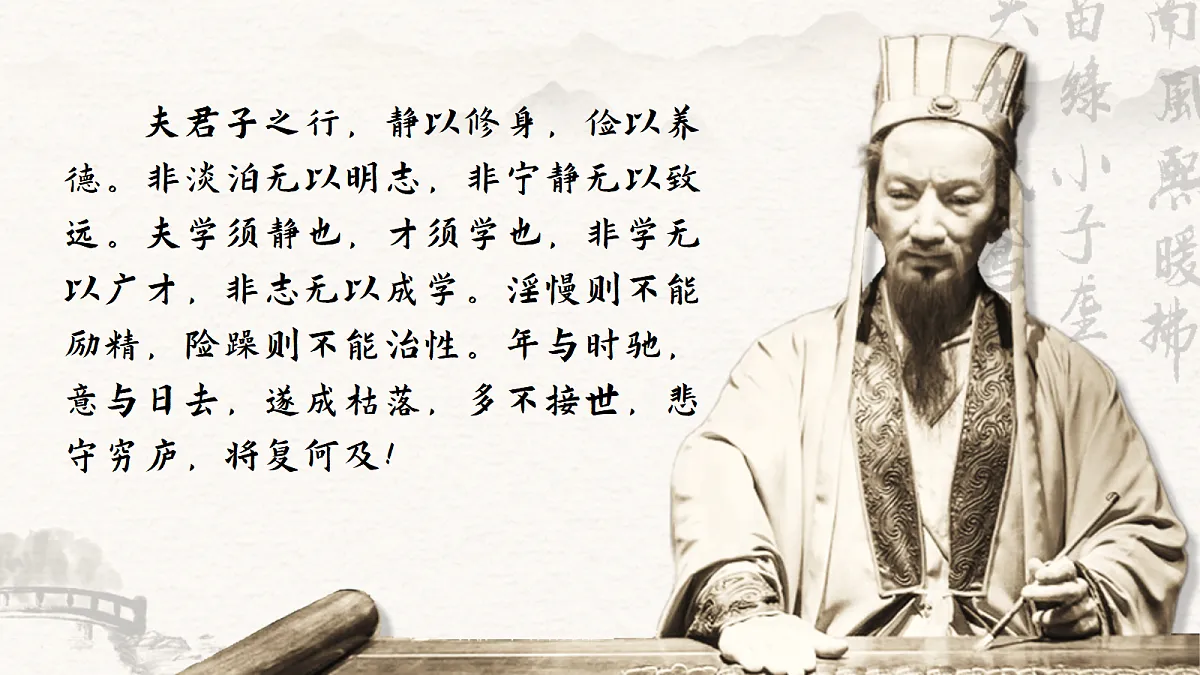 夫君子之行，静以修身，俭以养
德。非淡泊无以明志，非宁静无以致
远。夫学须静也，才须学也，非学无
以广才，非志无以成学。淫慢则不能
励精，险躁则不能治性。年与时驰，
意与日去，遂成枯落，多不接世，悲
守穷庐，将复何及！
南風熙暖拂
苗绿小子垄